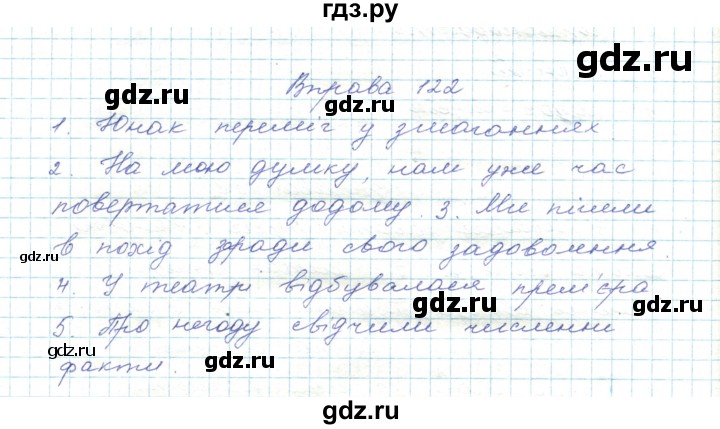 гдз.ру
gdz.ru
Вправа 122
gdz.ru
gdz.ru
1. Юнак переміг у змаганнях.
2. На мою думку, нам уже час
повертатися додому. 3. Ми пішли
в похід заради свого задоволення.
gdz.ru
gdz.ru
4. У театрі відбувалася прем'єра
5. Про негоду свідчили численні
gdz.ru
gdz.ru
факти.
gdz.ru